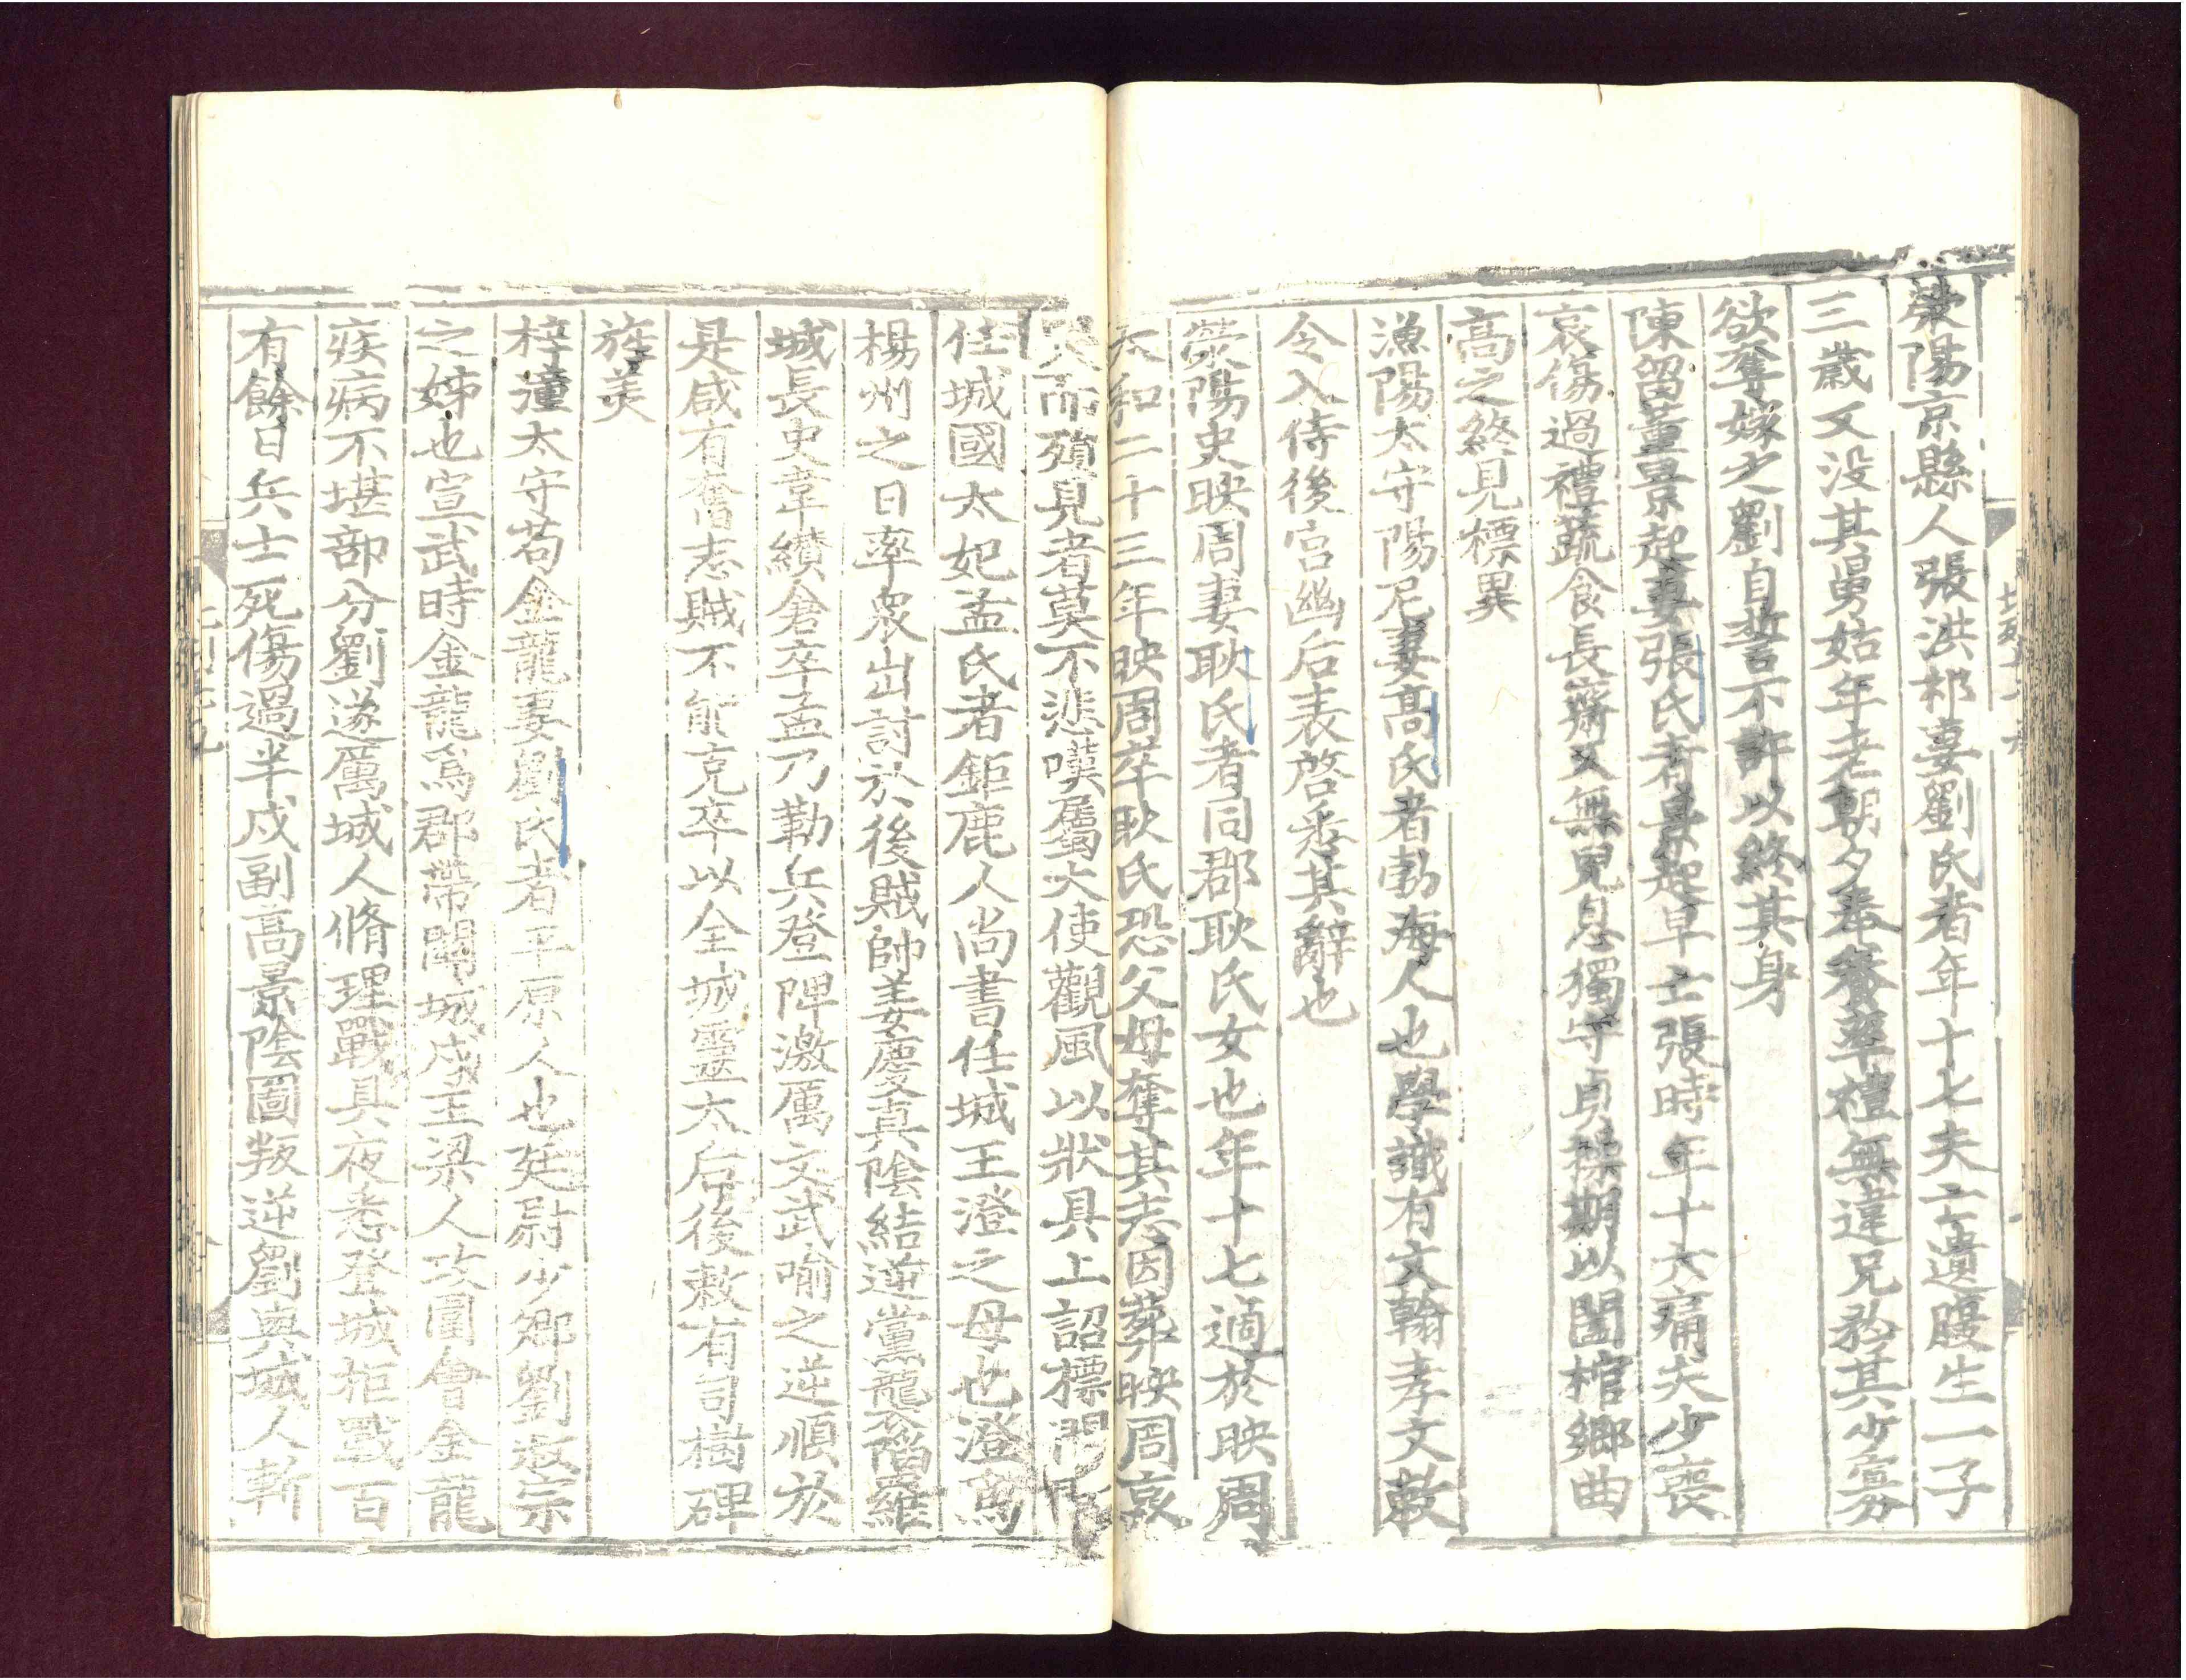 滎陽京縣人張洪祁妻劉氏者年十七夫亡遺腹生一子
三歲又没其舅姑年老朝夕奉養率禮無違兄矜其少寡
欲奪嫁之劉自誓不許以終其身
陳留董景起妻張氏者景起早亡張時年十六痛夫少喪
哀傷過禮蔬食長齋又無兒息獨守貞操期以闔棺鄉曲
高之終見標異
漁陽太守陽尼妻高氏者勃海人也學識有文翰孝文敕
令入侍後宫幽后表啓悉其辭也
滎陽史映周妻耿氏者同郡耿氏女也年十七適於映周
太和二十三年映周卒耿氏恐父母奪其志因葬映周哀
哭而殞見者莫不悲嘆屬大使觀風以狀具上詔標門
任城國太妃孟氏者鉅鹿人尚書任城王澄之母也澄爲
楊州之日率衆出討於後賊帥姜慶真陰結逆黨襲陷羅
城長史韋纘倉卒孟乃勒兵登陴激厲文武喻之逆順於
是咸有奮志賊不能克卒以全城靈太后後敕有司樹碑
旌美
梓潼太守苟金龍妻劉氏者平原人也廷尉少卿劉叔宗
之姊也宣武時金龍爲郡帶關城戍主梁人攻圍會金龍
疾病不堪部分劉遂厲城人脩理戰具夜悉登城拒戰百
有餘日兵士死傷過半戍副高景陰圖叛逆劉與城人斬